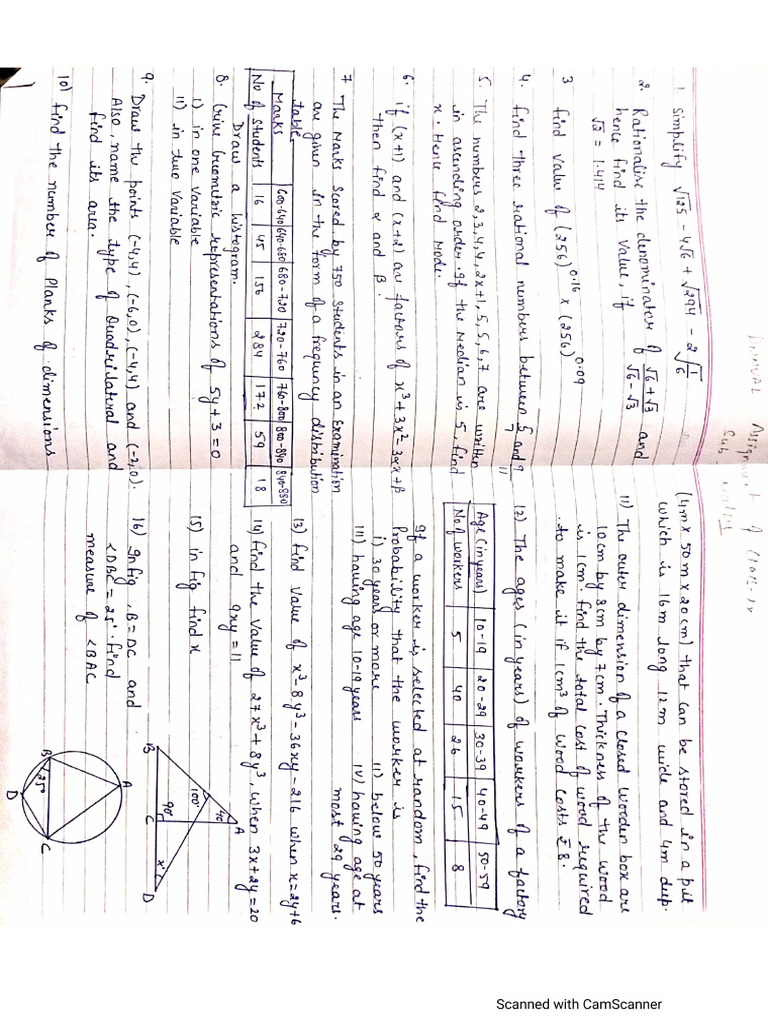 Annual Assignment of Class-IX
Sub.
1 Simplify √125 - 4√6 + √294 - 2√1/6
2. Rationalise the denominator of √6+√3/√6-√3 and
hence find its value, if
√2 = 1.414
3 find value of (256)^0.16 x (256)^0.09
4. find three rational numbers between 5/7 and 9/11
5. The numbers 2,3,4,4,2x+1,5,5,6,7 are written
in ascending order. If the Median is 5, find
x. Hence find Mode.
6. if (x+1) and (x+2) are factors of x³+3x²-3αx+β
then find α and β.
7 The Marks scored by 750 students in an Examination
are given in the form of a frequency distribution
table.
Marks 600-640 640-680 680-720 720-760 760-800 800-840 840-880
No of students 16 45 156 284 172 59 18
Draw a histogram.
8. Give Geometric representations of 5y+3=0
i) in one variable
ii) in two variable
9. Draw the points (-4,4), (-6,0), (-4,4) and (-2,0).
Also, name the type of Quadrilateral and
find its area.
10) find the number of Planks of dimensions
(4m x 50m x 20cm) that can be stored in a pit
which is 16m long 12m wide and 4m deep.
11) The outer dimension of a closed wooden box are
10cm by 8cm by 7cm. Thickness of the wood
is 1cm. find the total cost of wood required
to make it if 1cm³ of wood costs ₹8.
12) The ages (in years) of workers of a factory
Age (in years) 10-19 20-29 30-39 40-49 50-59
No. of workers 5 40 26 15 8
If a worker is selected at random, find the
Probability that the worker is
i) 30 years or more ii) below 50 years
iii) having age 10-19 years iv) having age at
most 29 years.
13) find value of x³-8y³-36xy-216 when x=2y+6
14) find the value of 27x³+8y³, when 3x+2y=20
and 9xy=11
15) in fig find x
A
40
100°
90°
x°
B
C
D
16) In fig, B=DC and
<DBC = 25°. find
measure of <BAC
A
B
25°
C
D
Scanned with CamScanner